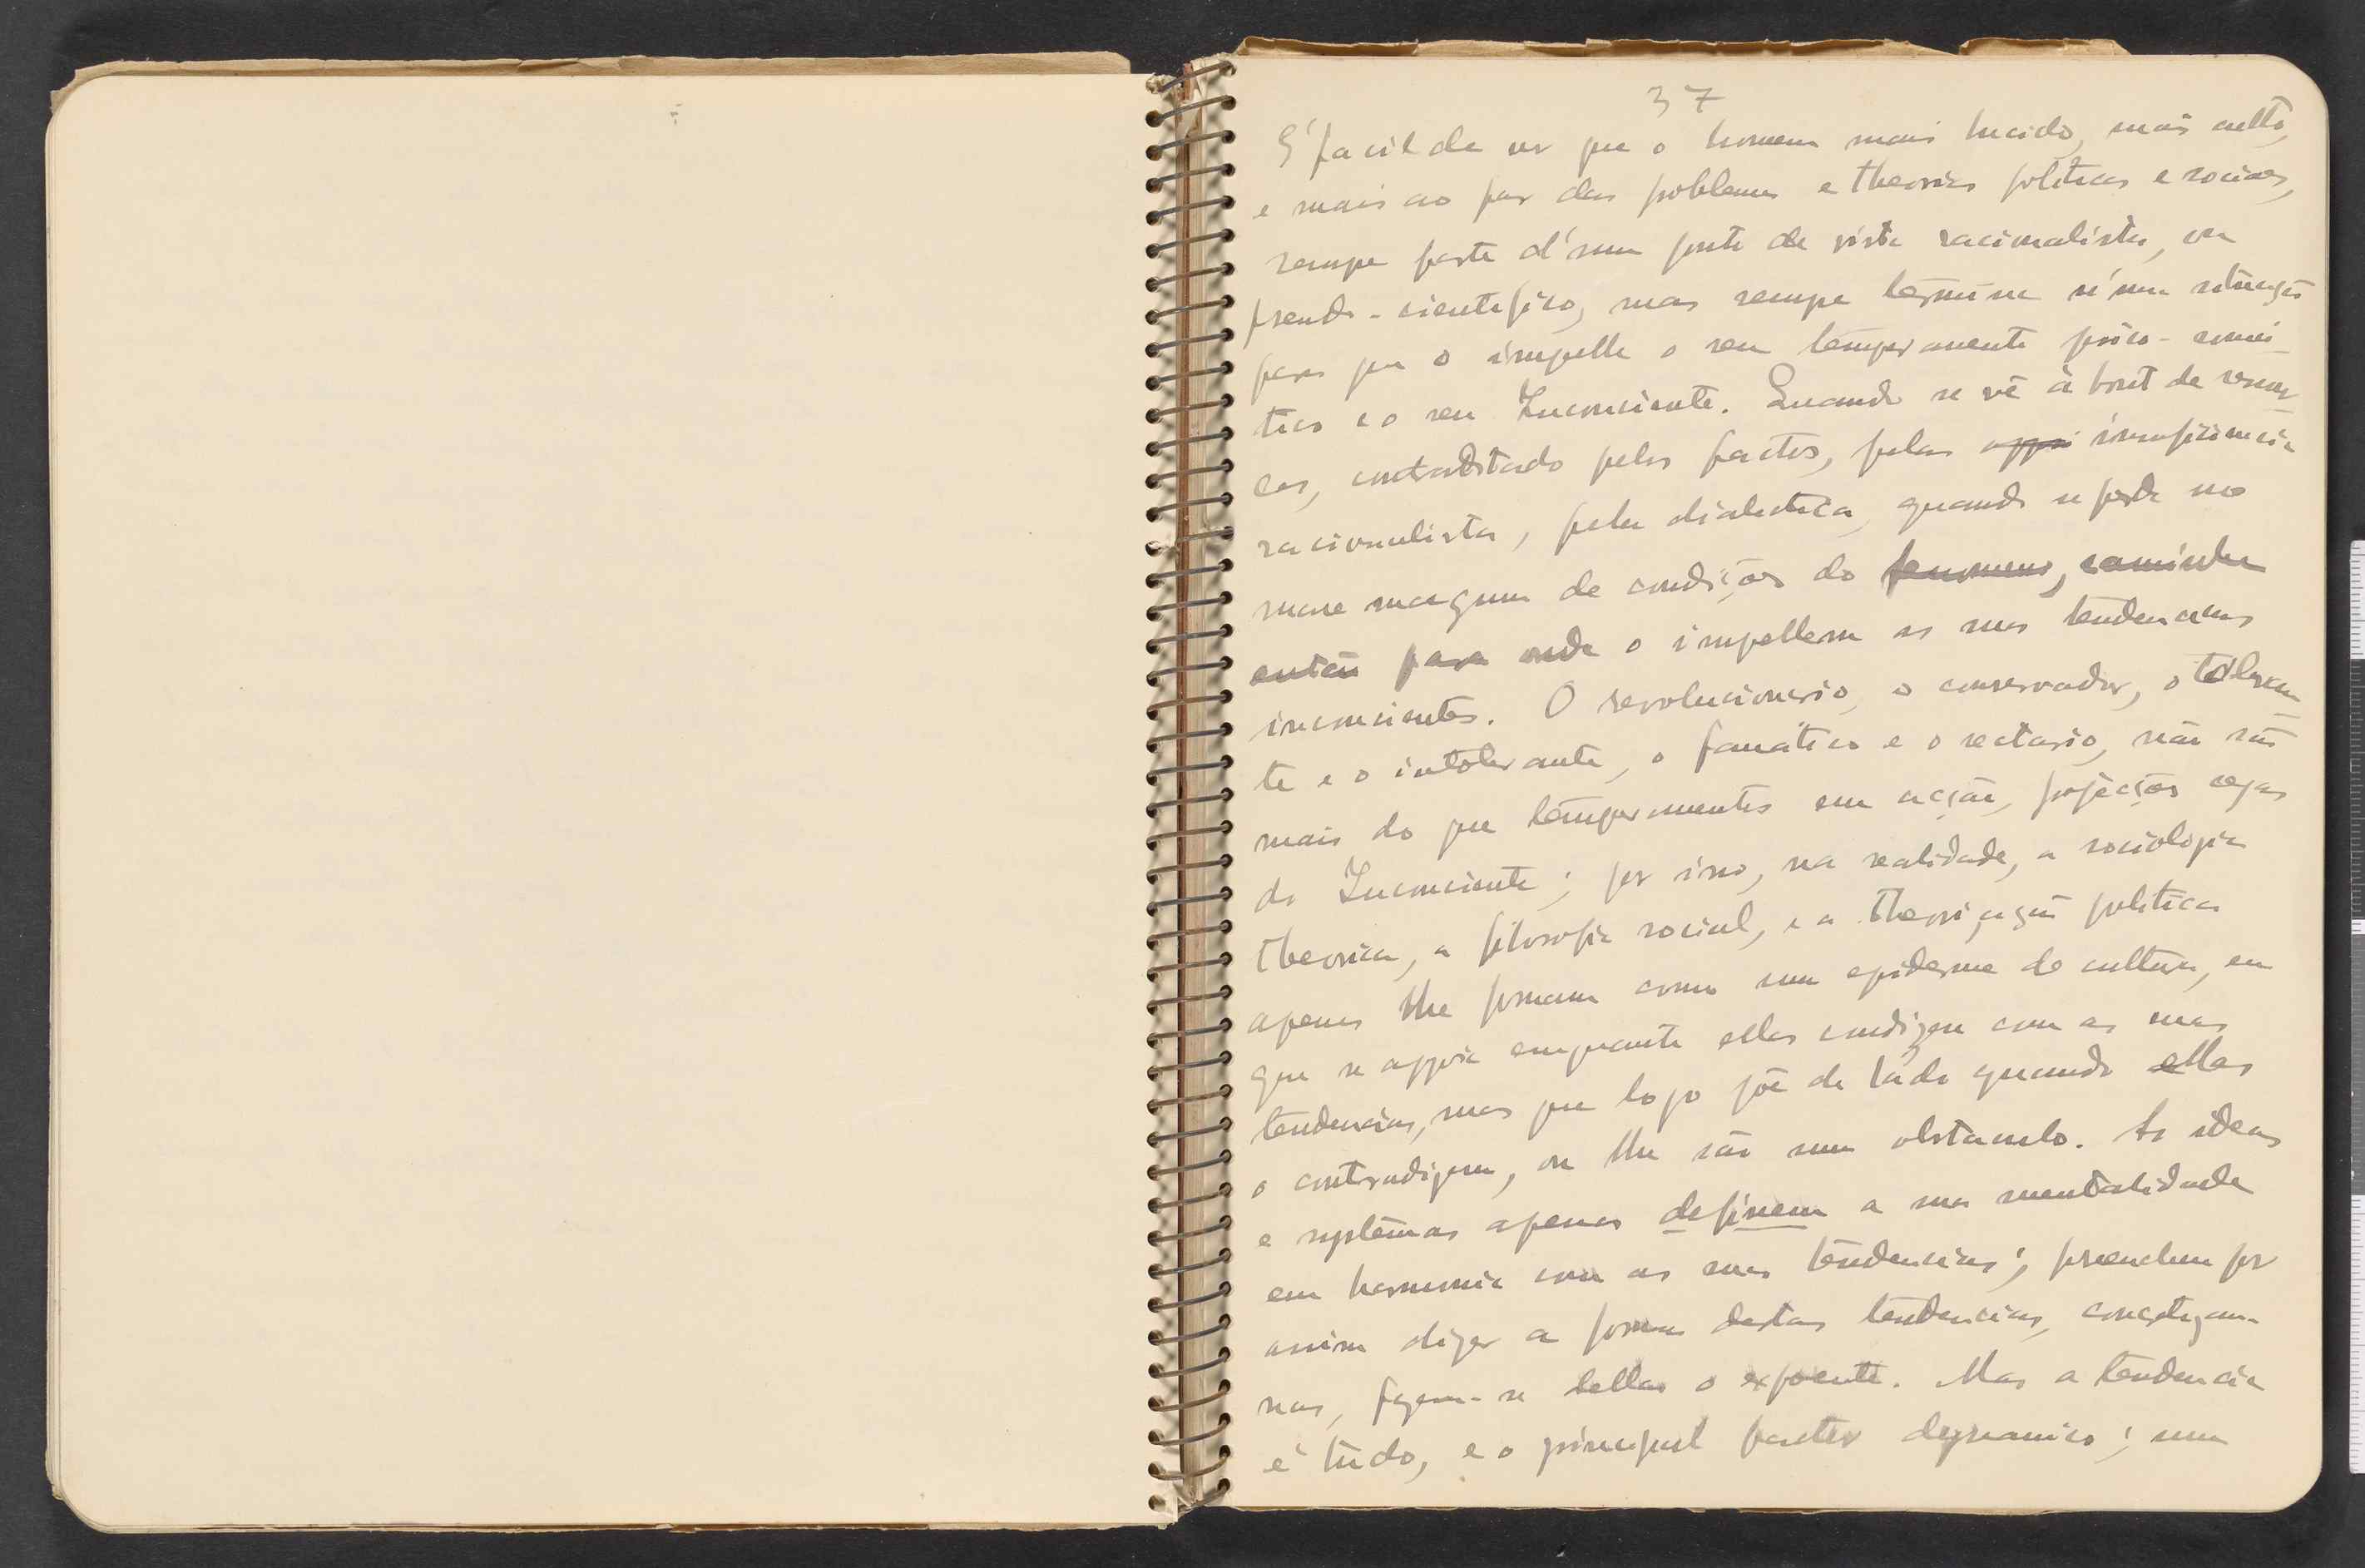 37
É facil de ver que o homem mais lucido, mais culto,
e mais ao par dos problemas e theorias politicas e sociaes,
sempre parte d'um ponto de vista racionalista, ou
pseudo-cientifico, mas sempre termina n'uma situação
para que o impelle o seu temperamento psico-somá-
tico e o seu Inconsciente. Quando se vê à bout de resour-
ces, contraditado pelos factos, pelas appoi insuficiencia
racionalista, pela dialectica, quando se perde no
mare magnum de condições do fenomeno, caminha
então para onde o impellem as suas tendencias
inconscientes. O revolucionario, o conservador, o toleran-
te e o intolerante, o fanático e o sectario, não são
mais do que temperamentos em acção, projecções cegas
do Inconsciente; por isso, na realidade, a sociologia
theorica, a filosofia social, e a theorisação politica
apenas lhe formam como uma epiderme de cultura, em
que se appoia emquanto ellas condizem com as suas
tendencias, mas que logo põe de lado quando ellas
o contradizem, ou lhe são um obstaculo. As ideas
e systemas apenas definem a sua mentalidade
em harmonia com as suas tendencias; preenchem por
assim dizer a forma destas tendencias,
nas, fazem-se dellas o expoente. Mas a tendencia
é tudo, e o principal factor dynamico; um